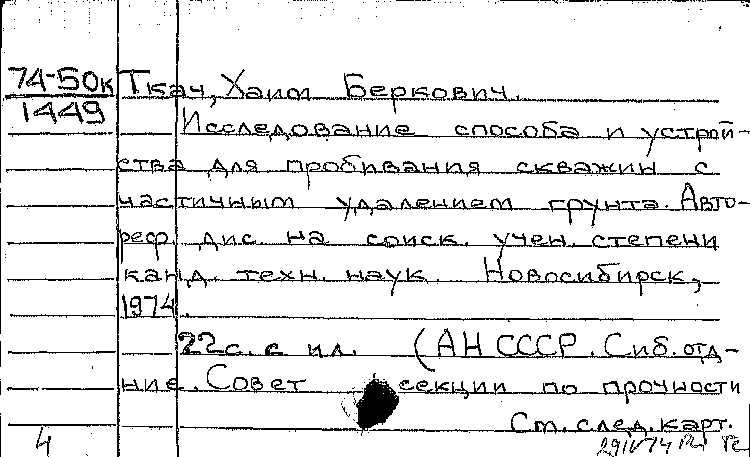 74-50к Ткач, Хаим Беркович.
1449
Исследование способа и устрой-
ства для пробивания скважин с
частичным удалением грунта. Авто-
реф. дис. на соиск. учен. степени
канд. техн. наук. Новосибирск,
1974.
22с. с ил. (АН СССР. Сиб. отд-
ние. Совет секции по прочности
См. след. карт.
4 29IV74